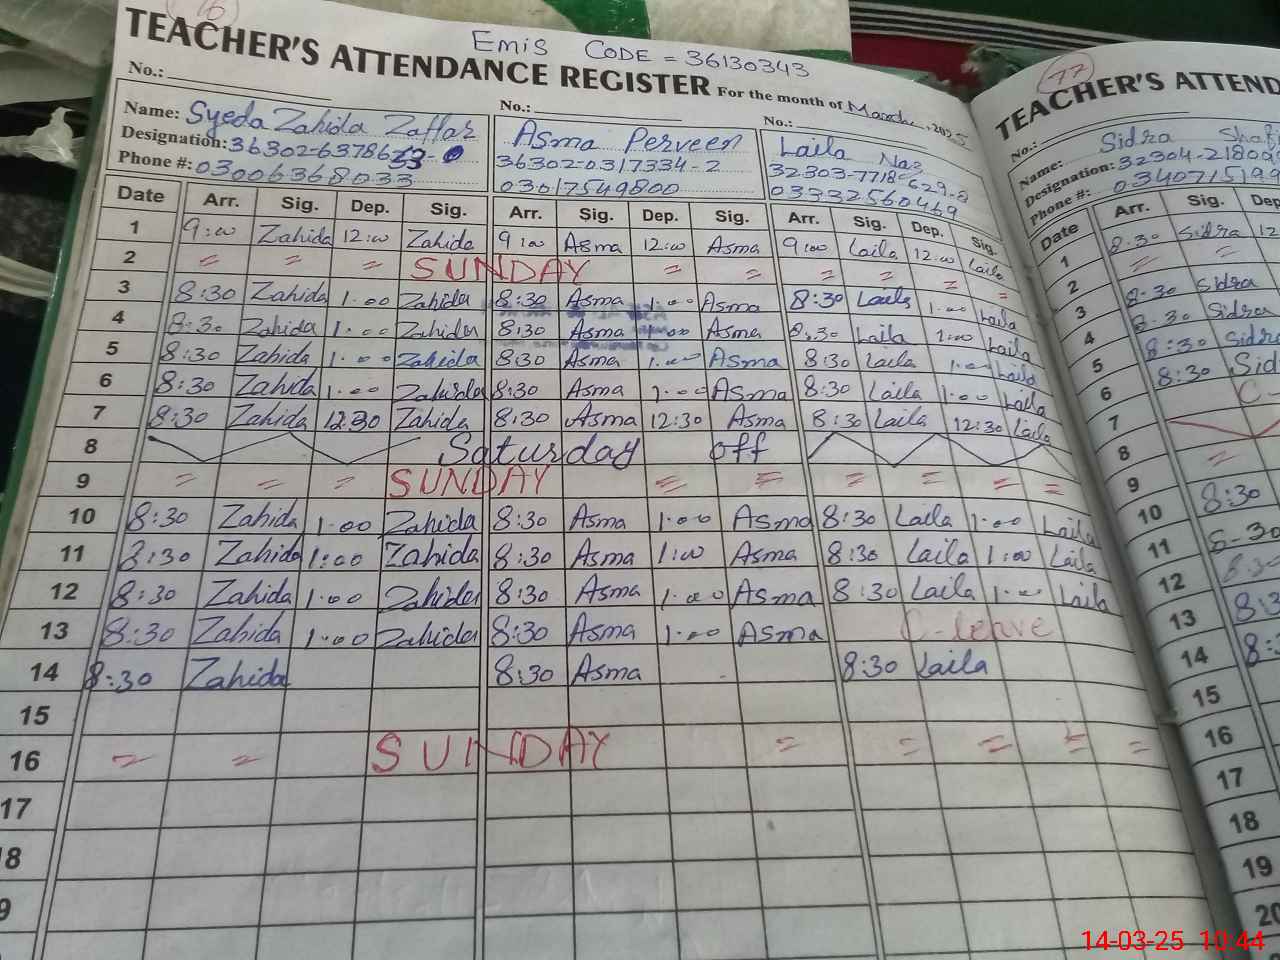 16
Emis CODE = 36130343
TEACHER'S ATTENDANCE REGISTER For the month of March, 2025
No.: No.: No.:
Name: Syeda Zahida Zaffar Asma Perveen Laila Naz
Designation: 36302-0317334-2 32303-7718-629-8
Phone #: 03006368033 03017549800 03332560469
Date Arr. Sig. Dep. Sig. Arr. Sig. Dep. Sig. Arr. Sig. Dep. Sig.
1 9:00 Zahida 12:00 Zahida 9:00 Asma 12:00 Asma 9:00 Laila 12:00 Laila
2 = = = SUNDAY = = = = = =
3 8:30 Zahida 1:00 Zahida 8:30 Asma 1:00 Asma 8:30 Laila 1:00 Laila
4 8:30 Zahida 1:00 Zahida 8:30 Asma 1:00 Asma 8:30 Laila 1:00 Laila
5 8:30 Zahida 1:00 Zahida 8:30 Asma 1:00 Asma 8:30 Laila 1:00 Laila
6 8:30 Zahida 1:00 Zahida 8:30 Asma 1:00 Asma 8:30 Laila 1:00 Laila
7 8:30 Zahida 12:30 Zahida 8:30 Asma 12:30 Asma 8:30 Laila 12:30 Laila
8 Saturday off
9 = = = SUNDAY = = = = = =
10 8:30 Zahida 1:00 Zahida 8:30 Asma 1:00 Asma 8:30 Laila 1:00 Laila
11 8:30 Zahida 1:00 Zahida 8:30 Asma 1:00 Asma 8:30 Laila 1:00 Laila
12 8:30 Zahida 1:00 Zahida 8:30 Asma 1:00 Asma 8:30 Laila 1:00 Laila
13 8:30 Zahida 1:00 Zahida 8:30 Asma 1:00 Asma C-leave
14 8:30 Zahida 8:30 Asma 8:30 Laila
15
16 = = SUNDAY = = = = =
17
18
9
77
TEACHER'S ATTEND
No.:
Name: Sidra
Designation: 32304-21809
Phone #: 0340715199
Date Arr. Sig. Dep
1 8:30 Sidra 12
2 = =
3 8:30 Sidra
4 8:30 Sidra
5 8:30 Sidra
6 8:30 Sid
7 C-
8
9 =
10 8:30
11 8-30
12 8:30
13 8:3
14 8:
15
16
17
18
19
20
14-03-25 10:44